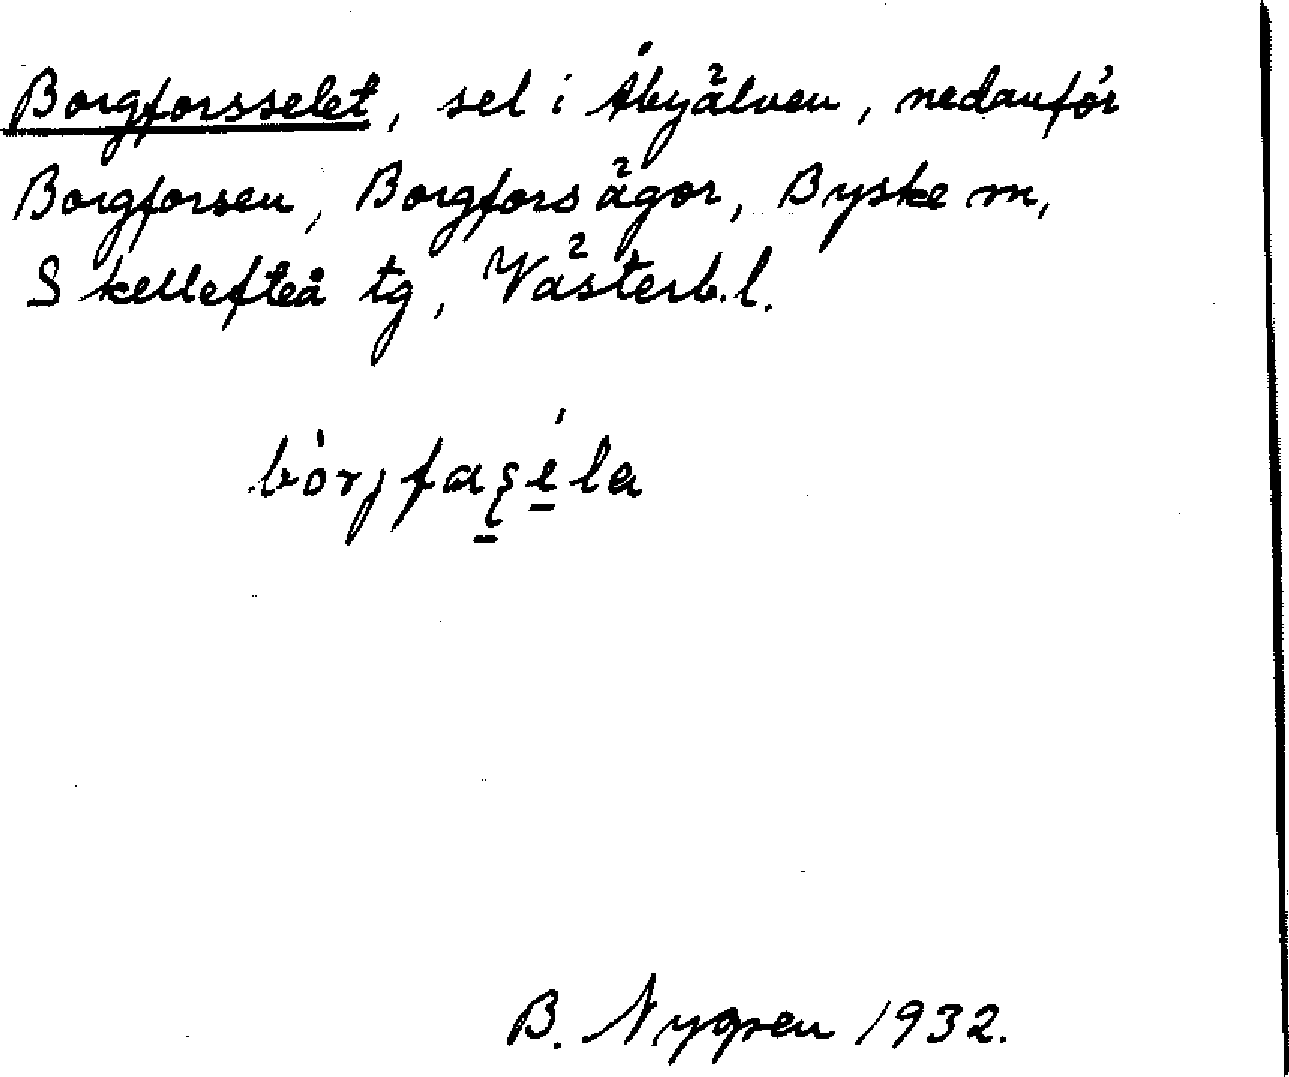 Borgforsselet, sel i Åbyälven, nedanför
Borgforsen, Borgfors ägor, Byske sn,
Skellefteå tg, Västerb. l.
bòrjfaʂéla
B. Nygren 1932.